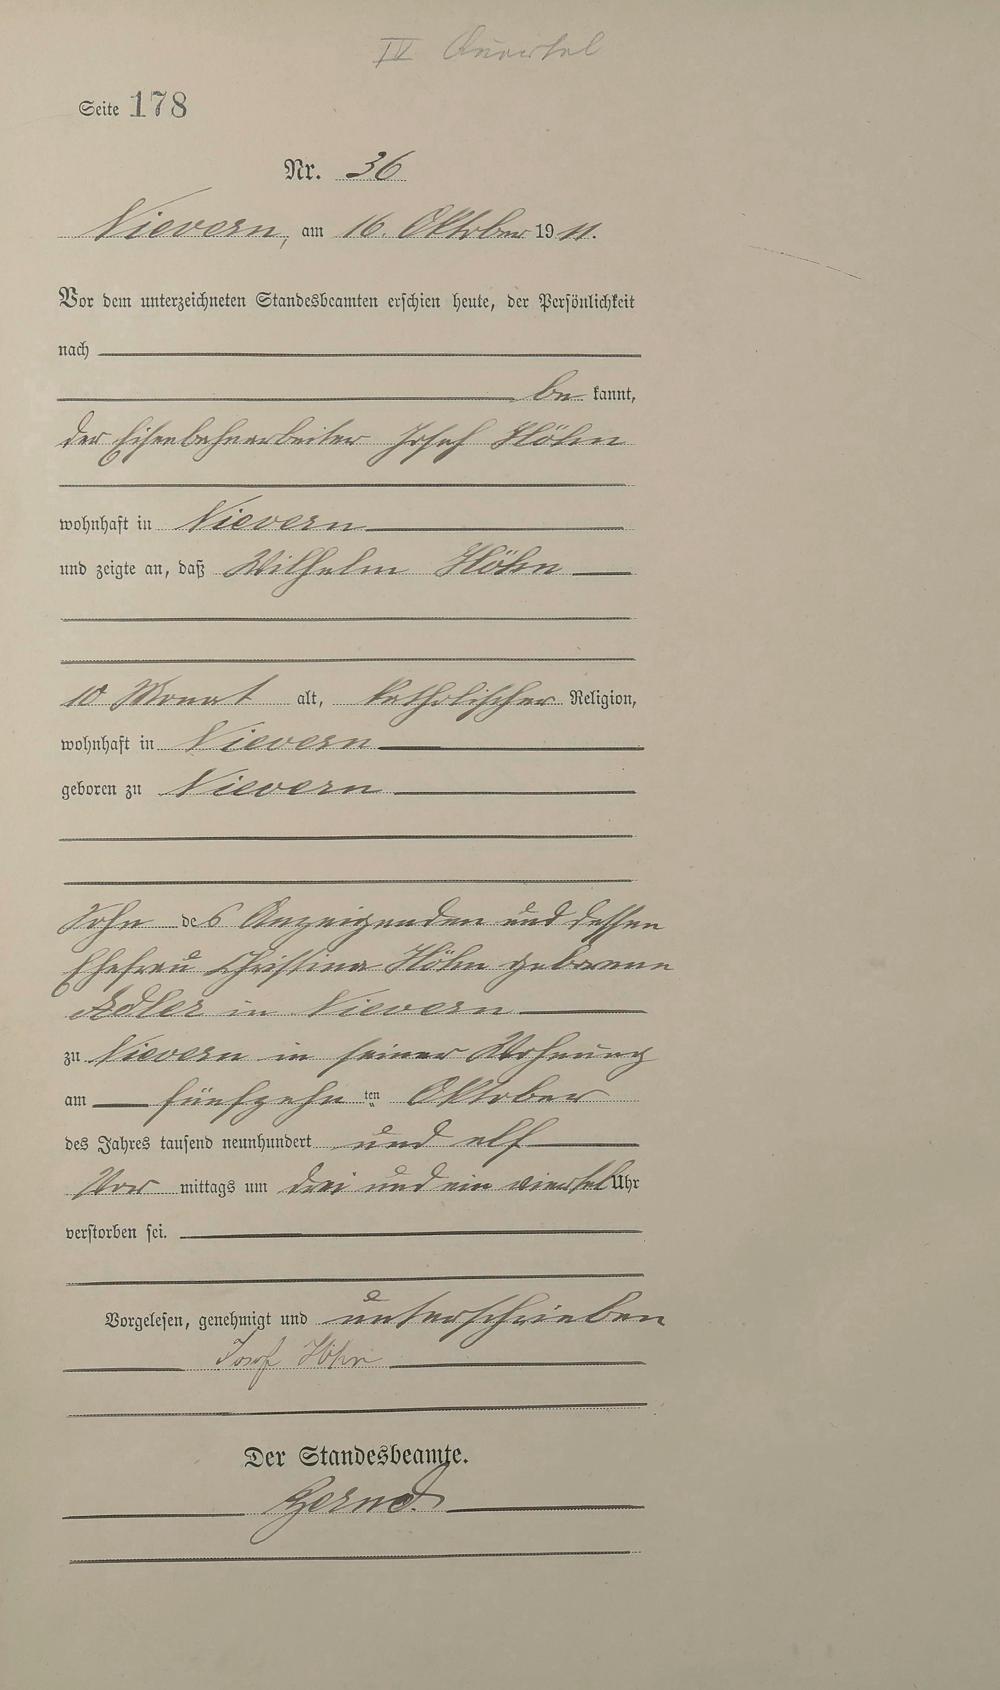 IV Quartal
Seite 178
Nr. 36
Nievern, am 16. Oktober 1911.
Vor dem unterzeichneten Standesbeamten erschien heute, der Persönlichkeit
nach
be kannt,
der Eisenbahnarbeiter Josef Höhn
wohnhaft in Nievern
und zeigte an, daß Wilhelm Höhn
10 Monat alt, katholischer Religion,
wohnhaft in Nievern
geboren zu Nievern
Sohn des Anzeigenden und dessen
Ehefrau Christina Höhn geborenen
Adler in Nievern
zu Nievern in seiner Wohnung
am fünfzehn ten Oktober
des Jahres tausend neunhundert und elf
Vor mittags um drei und ein viertel Uhr
verstorben sei.
Vorgelesen, genehmigt und unterschrieben
Josef Höhn
Der Standesbeamte.